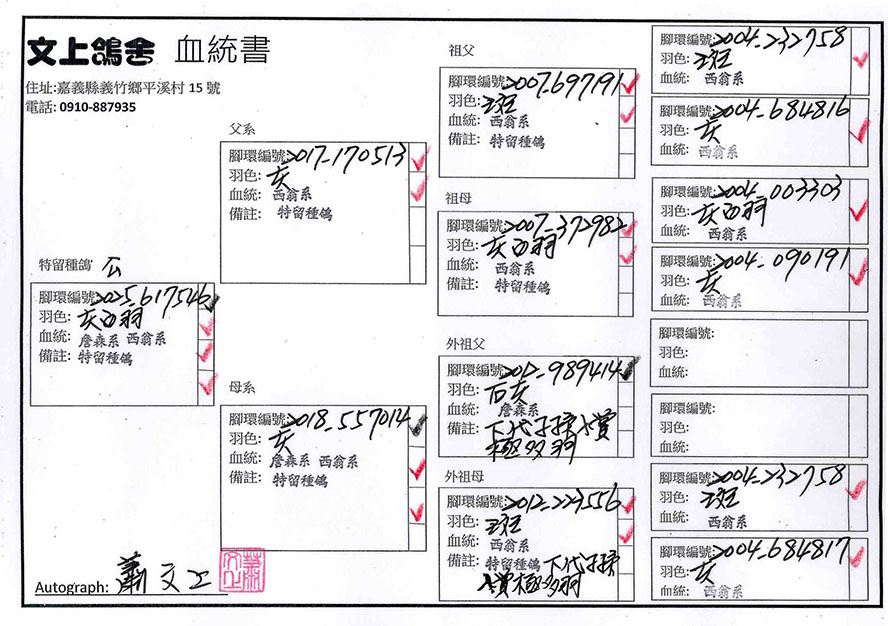 文上鴿舍 血統書
住址:嘉義縣義竹鄉平溪村 15 號
電話: 0910-887935
特留種鴿 公
腳環編號:2025-617546
羽色: 灰白羽
血統: 詹森系 西翁系
備註: 特留種鴿
父系
腳環編號:2017-170513
羽色: 灰
血統: 西翁系
備註: 特留種鴿
母系
腳環編號:2018-557014
羽色: 灰
血統: 詹森系 西翁系
備註: 特留種鴿
祖父
腳環編號:2007-697191
羽色: 斑
血統: 西翁系
備註: 特留種鴿
祖母
腳環編號:2007-372982
羽色: 灰白羽
血統: 西翁系
備註: 特留種鴿
外祖父
腳環編號:2012-989414
羽色: 石灰
血統: 詹森系
備註: 下代子孫入賞
極多羽
外祖母
腳環編號:2012-223556
羽色: 斑
血統: 西翁系
備註: 特留種鴿 下代子孫
入賞極多羽
腳環編號:2004-232758
羽色: 斑
血統: 西翁系
腳環編號:2004-684816
羽色: 灰
血統: 西翁系
腳環編號:2004-003303
羽色: 灰白羽
血統: 西翁系
腳環編號:2004-090191
羽色: 灰
血統: 西翁系
腳環編號:
羽色:
血統:
腳環編號:
羽色:
血統:
腳環編號:2004-232758
羽色: 斑
血統: 西翁系
腳環編號:2004-684817
羽色: 灰
血統: 西翁系
Autograph: 蕭文上
蕭文上